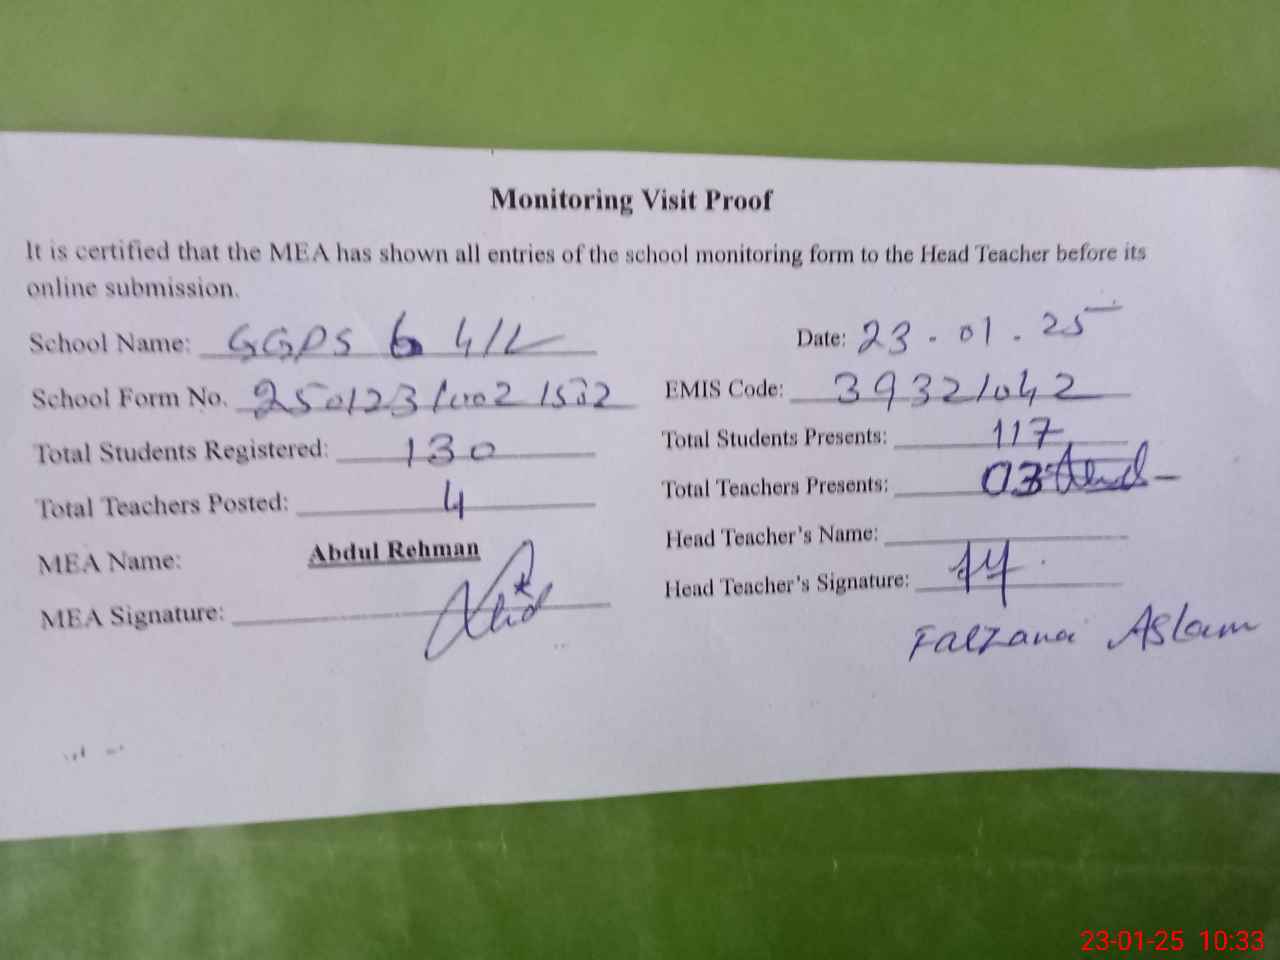 Monitoring Visit Proof
It is certified that the MEA has shown all entries of the school monitoring form to the Head Teacher before its
online submission.
School Name: GGPS 6 4/L
Date: 23-01-25
School Form No.
EMIS Code: 39321042
Total Students Registered: 130
Total Students Presents: 117
Total Teachers Posted: 4
Total Teachers Presents: 03
MEA Name: Abdul Rehman
Head Teacher's Name:
MEA Signature:
Head Teacher's Signature:
Faezana Aslam
23-01-25 10:33